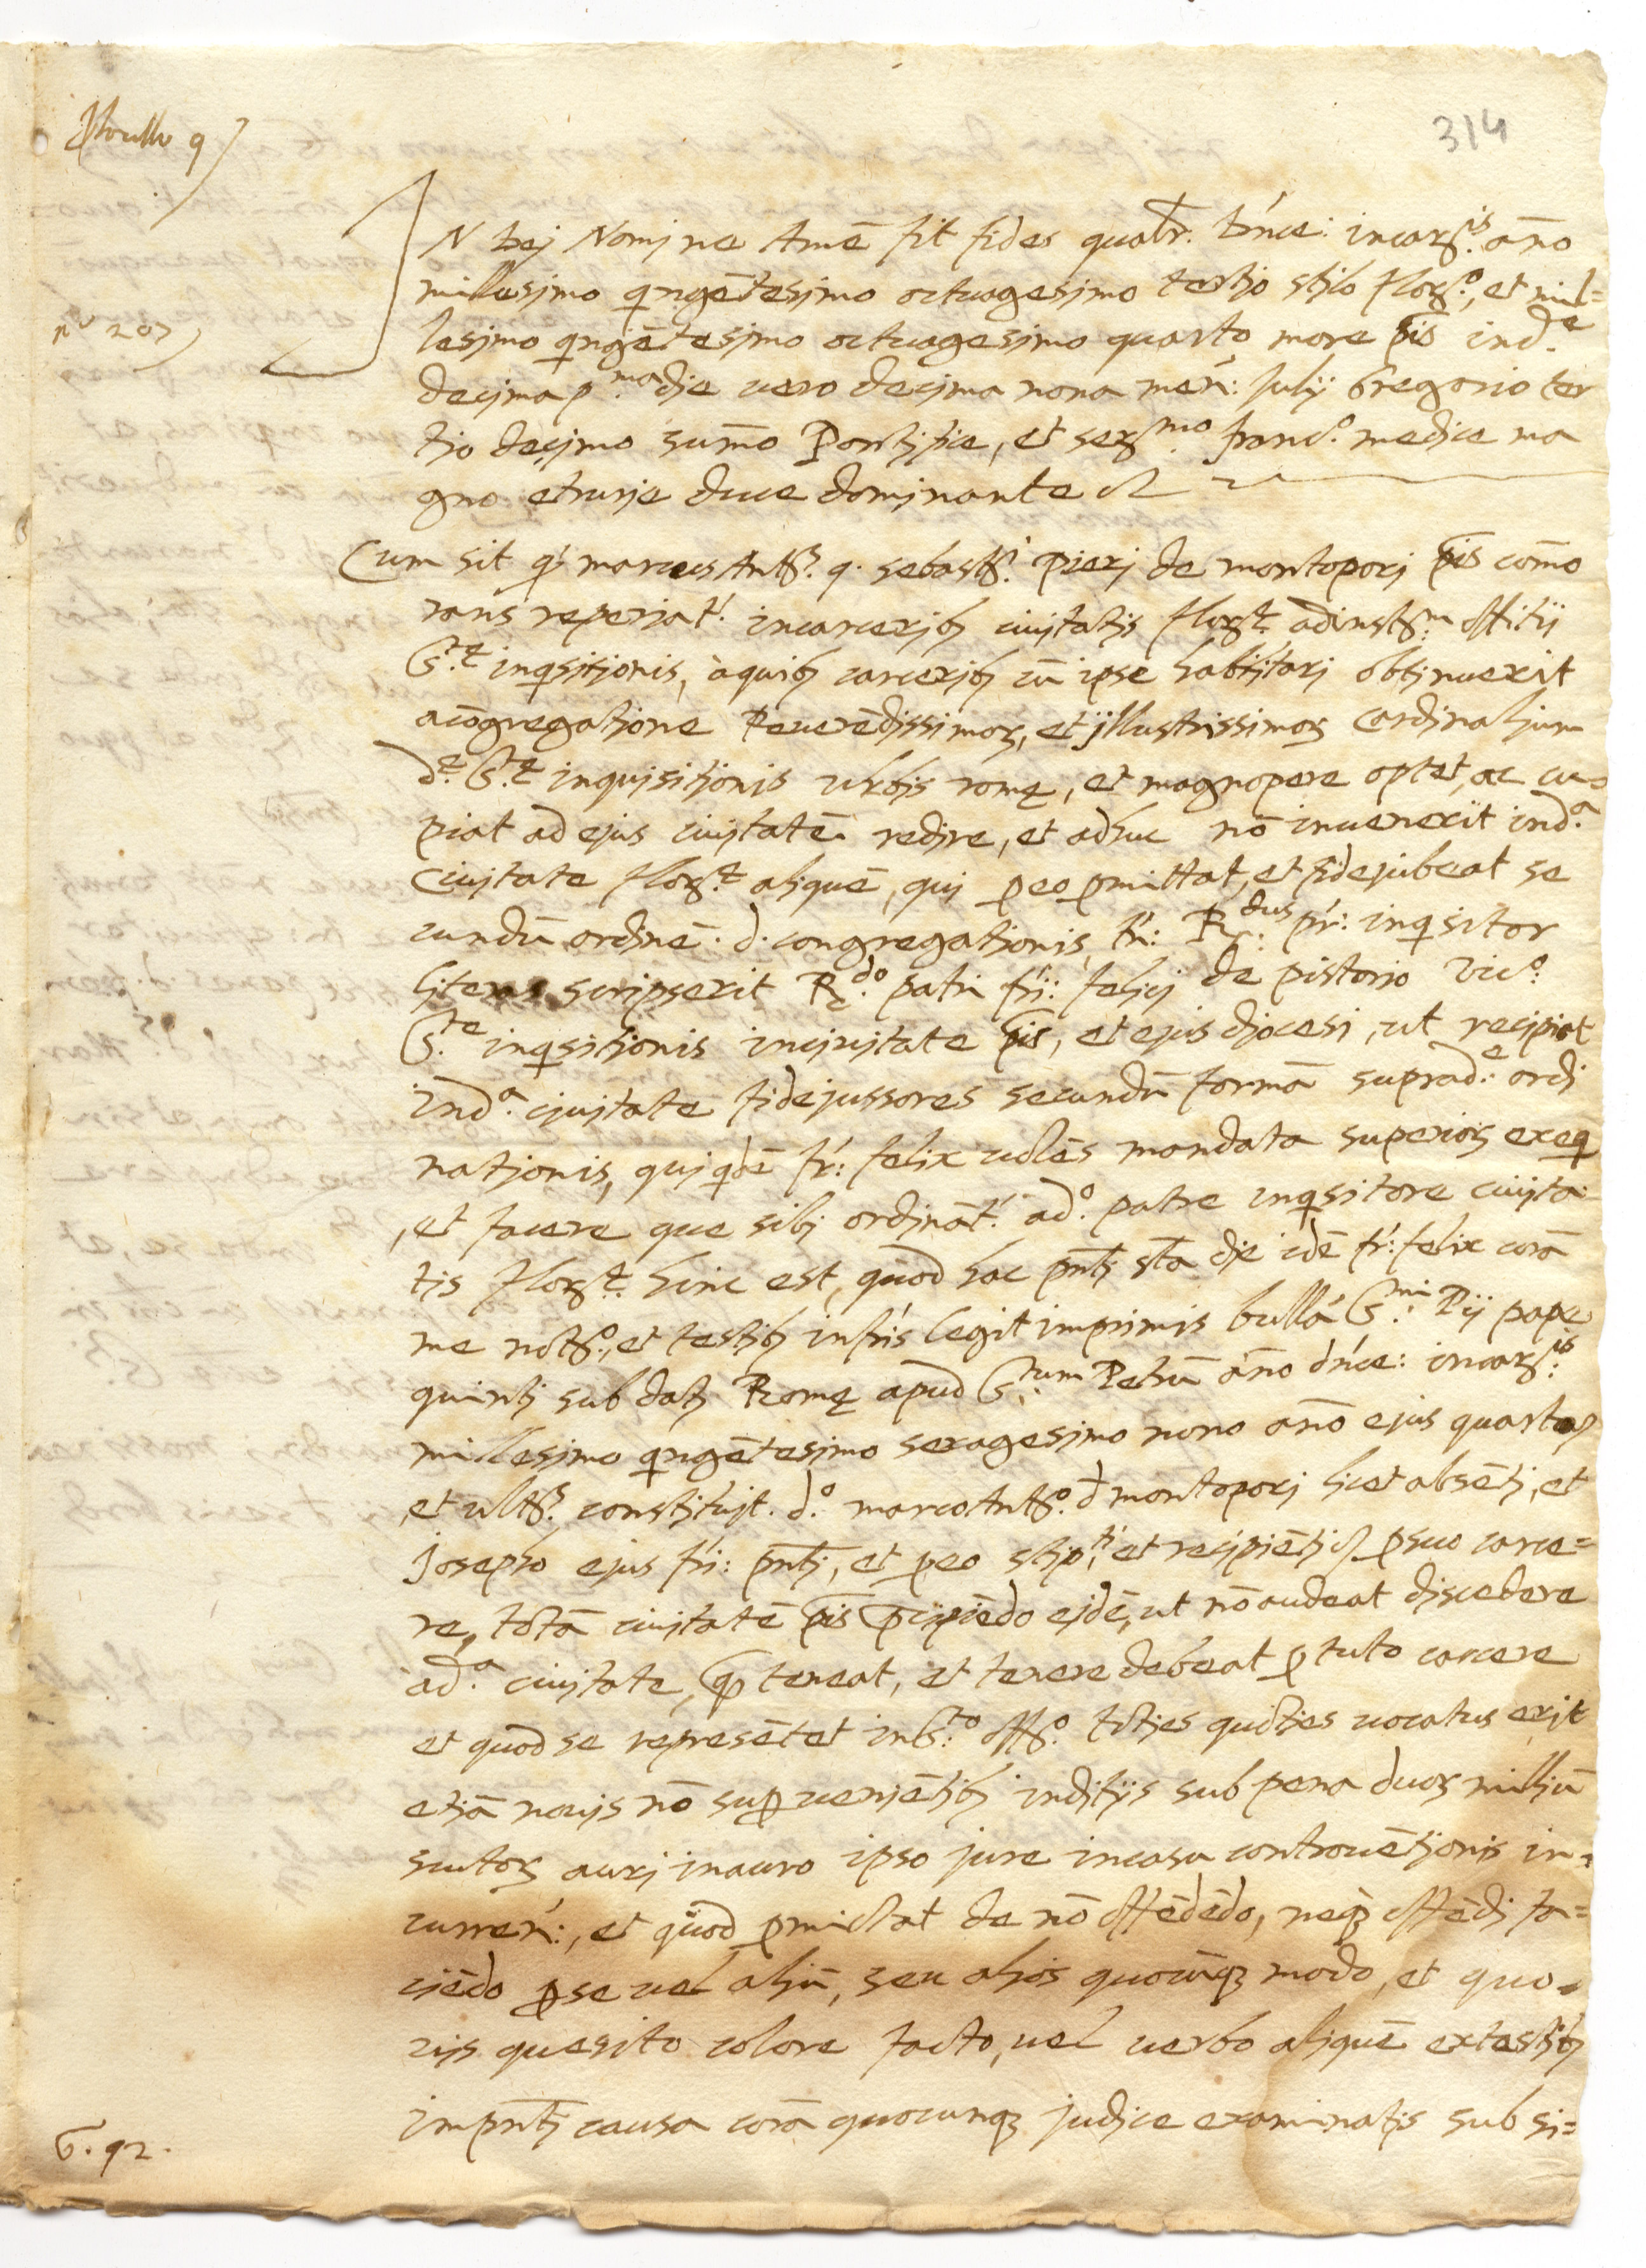 314
n° 207
IN Dej Nomine Amē fit fides qualr. Dn̄ce: incar.is an̄o
millesimo qngētesimo octuagesimo tertio stilo flor.o, et mil=
lesimo qngētesimo octuagesimo quarto more pis ind.e
decima p.ma die uero decima nona men: Julij Gregorio ter
tio decimo sum̄o Pontifice, et ser.mo franc.o medice ma
gno etrurie duce dominante
Cum sit q marcus Ant.s q. sebast.i Pierj de montoporj pis com̄o
rans reperiat. incarceribȝ ciujtatis flor.ę adinst.m offitij
S.tę inqsitionis, àquibȝ carceribȝ cū ipse habilitarj obtinuerit
acōgregatione Reuerēdissimorȝ, et jllustrissimorȝ Cardinalium
d.ę S.tę inquisitionis urbis romę, et magnopere optet, ac cu=
piat ad ejus ciujtatē redire, et adhuc nō inuenerit ind.a
Ciujtate flor.ę aliquē, qui p eo pmittat, et fidejubeat se
cundū ordinē d. congregationis, tn̄: R.dus pr̄: inqsitor
literas scripserit R.do patri fr̄i: felicj de pistorio Vic.o
S.te inqsitionis inciujtate pis, et ejus diocesi, ut recipiat
ind.a ciujtate fidejussores secundū formā suprad.e ordi
nationis, quiqdē fr̄: felix uolēs mandata superiorȝ exeq
, et facere que sibj ordināt. ad.o patre inqsitore ciujta
tis flor.ę hinc est, quod hac pn̄tj sta die idē fr̄: felix corā
me not.o, et testibȝ infr̄is legit imprimis bullā S.mi Pij pape
quintj sub datj Romę apud S.tum Petrū an̄o dn̄ce: incar.is
millesimo qngētesimo sexagesimo nono an̄o ejus quarto
et ult.s constituit. d.o marcoAnt.o d montoporj licet absētj, et
Josepho ejus fr̄i: pn̄tj, et p eo stip.ti et recipiētj p suo carce=
re, totā ciujtatē pis pcipiēdo ejdē, ut nō audeat discedere
ad.a ciujtate, q teneat, et tenere debeat p tuto carcere
et quod se represētet in S.to off.o toties quoties uocatus erit
etiā nouis nō supuenietibȝ inditijs sub pena duorȝ milliū
scutorȝ aurj inauro ipso jure incasu controuētionis in=
curren:, et quod pmictat de nō offēdēdo, neqȝ offēdj fa=
ciēdo p se uel aliū, seu alios quocūqȝ modo, et quo=
uis quesito colore facto, uel uerbo aliquē extestibȝ
inpn̄tj causa corā quocunqȝ judice examinatis sub si=
G. 92.